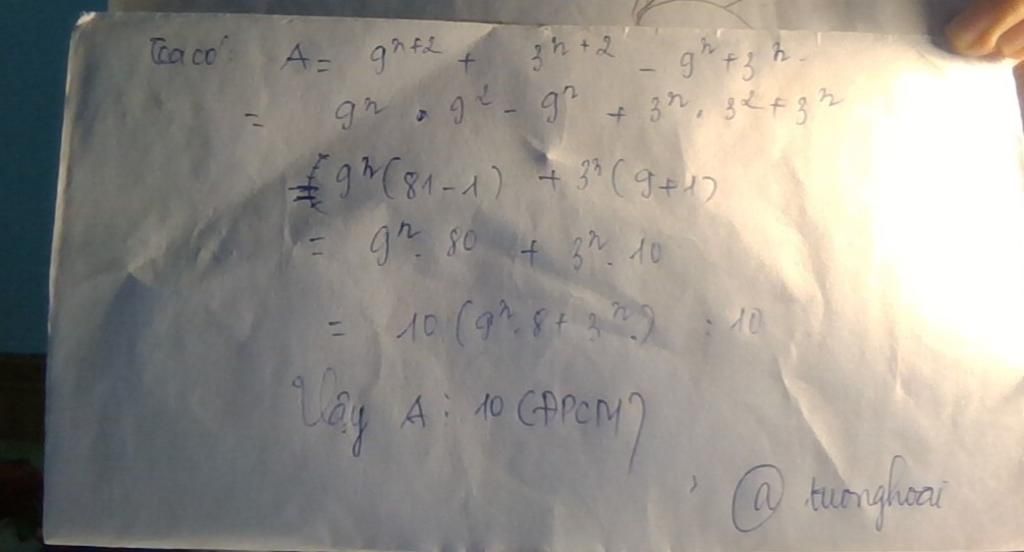 Ta có: A = 9ⁿ⁺² + 3ⁿ⁺² - 9ⁿ + 3ⁿ.
= 9ⁿ . 9² - 9ⁿ + 3ⁿ . 3² + 3ⁿ
= 9ⁿ(81-1) + 3ⁿ(9+1)
= 9ⁿ. 80 + 3ⁿ. 10
= 10 (9ⁿ.8 + 3ⁿ.) ⋮ 10
Vậy A ⋮ 10 (ĐPCM)
@ tuonghoai